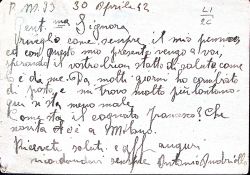 P.M. 33 30 Aprile 42
LI
26
Gent.ma Signora
come sempre il mio pensiero
ed con questo mio presente vengo a voi,
sperando il vostro buon stato di salute come
è da me. Da molti giorni ho cambiato
di posto e mi trovo molto più lontano
qui si sta meno male
Come sta il cognato Francesco? Che
novità c'è a Milano.
Ricevete saluti e auguri
ricordandovi sempre Antonio